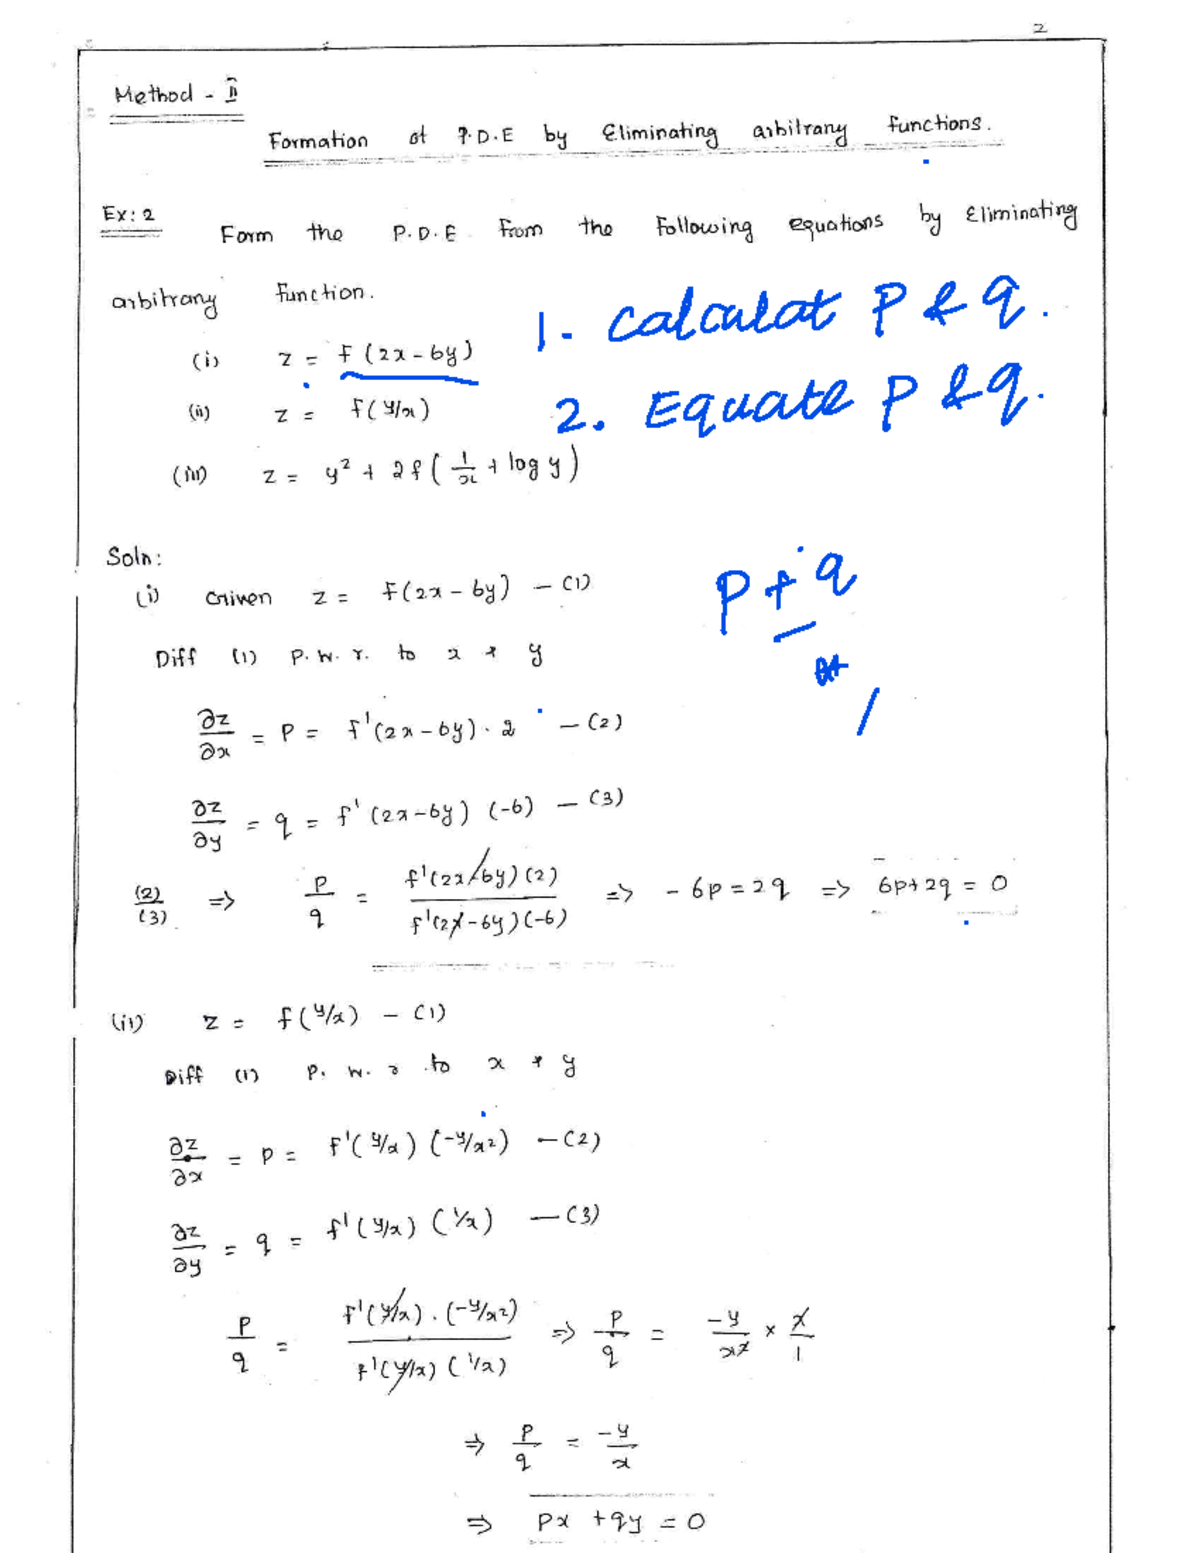 2
Method - II
Formation of P.D.E by Eliminating arbitrary functions.
Ex: 2 Form the P.D.E from the following equations by Eliminating
arbitrary function.
1. calculat P & q.
(i) z = f(2x - 6y)
(ii) z = f(y/x)
2. Equate P & q.
(iii) z = y² + 2f(1/x + log y)
Soln:
P + q
(i) Given z = f(2x - 6y) — (1)
Diff (1) P.w.r. to x & y
∂z/∂x = P = f'(2x - 6y) · 2 — (2)
∂z/∂y = q = f'(2x - 6y) (-6) — (3)
(2)/(3) ⇒ P/q = f'(2x-6y)(2)/f'(2x-6y)(-6) ⇒ -6P = 2q ⇒ 6P + 2q = 0
(ii) z = f(y/x) — (1)
Diff (1) P.w.r to x & y
∂z/∂x = P = f'(y/x) (-y/x²) — (2)
∂z/∂y = q = f'(y/x) (1/x) — (3)
P/q = f'(y/x) · (-y/x²)/f'(y/x) (1/x) ⇒ P/q = -y/x² × x/1
⇒ P/q = -y/x
⇒ Px + qy = 0